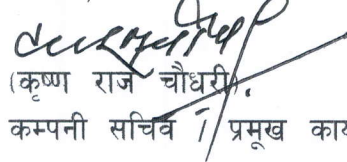 (कृष्ण राज चौधरी).
कम्पनी सचिव / प्रमूख